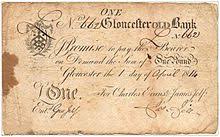 ONE
No. 662 Gloucester Old Bank
No 662
I Promise to pay the Bearer
on Demand the Sum of One Pound
Gloucester the 1 day of April 1814
For Charles Evans & James Jelf
Ent.